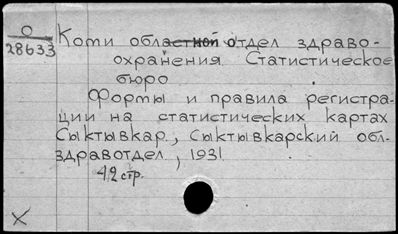 О
28633
Коми областной отдел здраво-
охранения. Статистическое
бюро
Формы и правила регистра-
ции на статистических картах
Сыктывкар, Сыктывкарский обл-
здравотдел, 1931
42 стр.
X